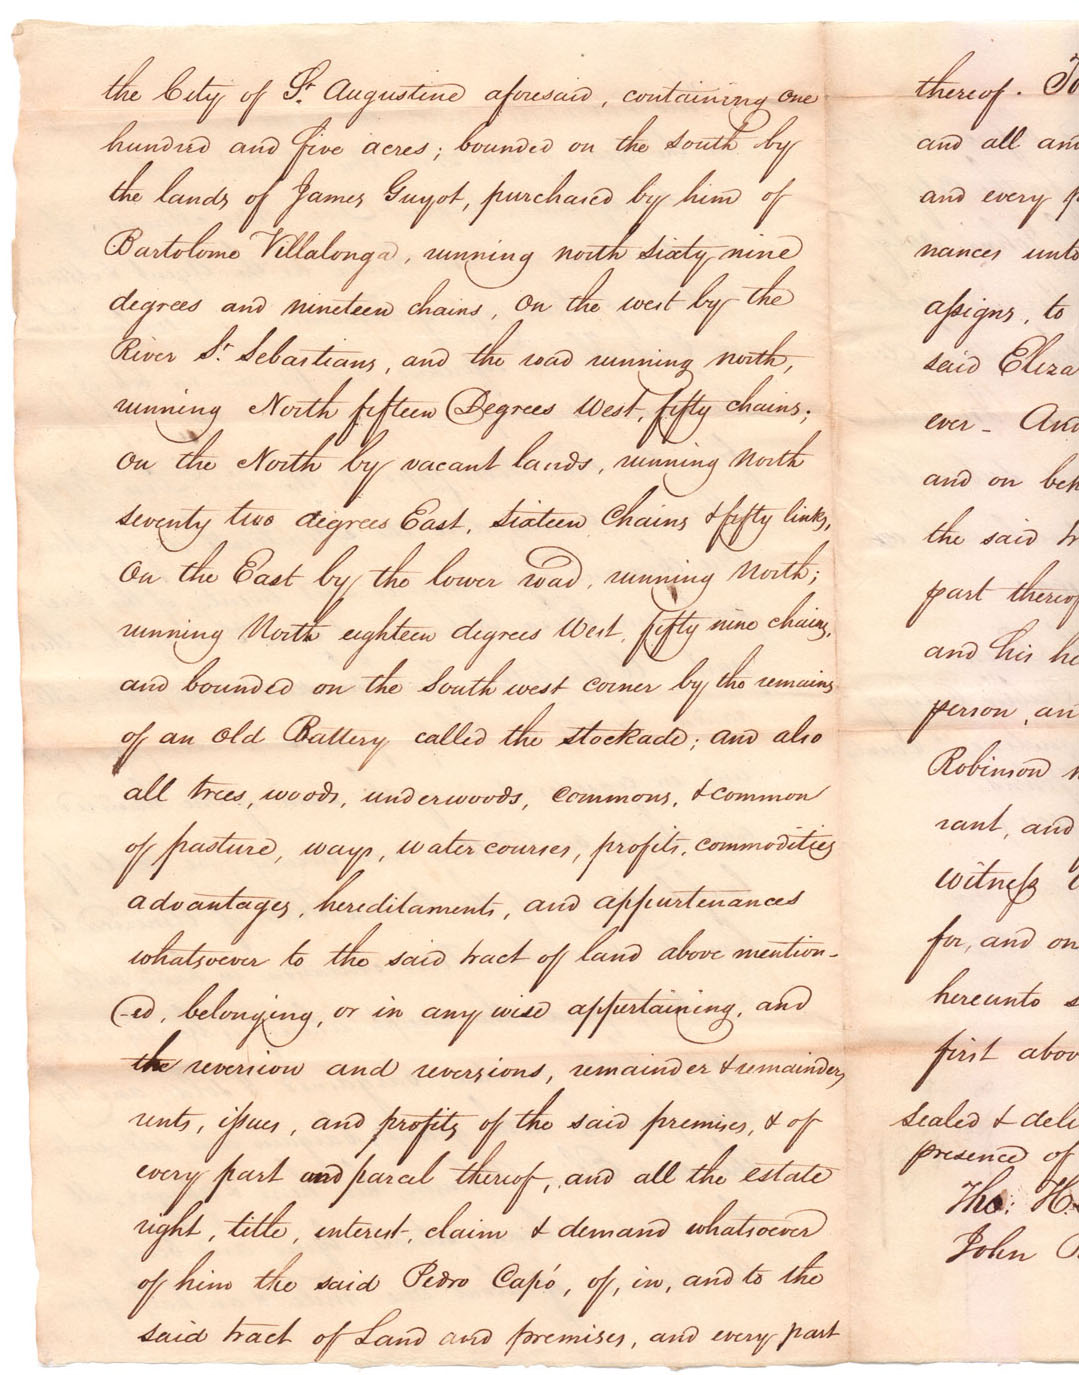 the City of St. Augustine aforesaid, containing One
hundred and five acres; bounded on the south by
the lands of James Guyot, purchased by him of
Bartolome Villalonga, running north sixty nine
degrees and nineteen chains, On the west by the
River St. Sebastians, and the road running north,
running North fifteen Degrees West, fifty chains;
On the North by vacant lands, running North
seventy two degrees East, sixteen Chains & fifty links,
On the East by the lower road, running North;
running North eighteen degrees West, fifty nine chains,
and bounded on the South west corner by the remains
of an Old Battery called the stockade; and also
all trees, woods, underwoods, commons, & common
of pasture, ways, water courses, profits, commodities
advantages, hereditaments, and appurtenances
whatsoever to the said tract of land above mention-
-ed, belonging, or in any wise appertaining, and
the reversion and reversions, remainder & remainders
rents, issues, and profits of the said premises, & of
every part and parcel thereof, and all the estate
right, title, interest, claim & demand whatsoever
of him the said Pedro Capó, of, in, and to the
said tract of Land and premises, and every part
thereof. To
and all an
and every p
nances unto
assigns, to
said Eliza
ever - And
and on beh
the said tr
part thereof
and his he
person, an
Robinson
rant, and
witness
for, and on
hereunto s
first abov
Sealed & deli
presence of
Tho: H.
John